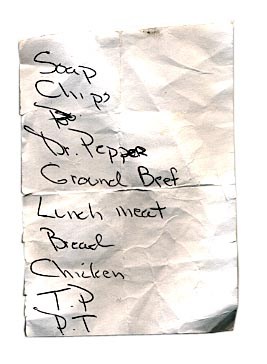 Soap
Chips
Dr. Pepper
Ground Beef
Lunch meat
Bread
Chicken
T.P
P.T